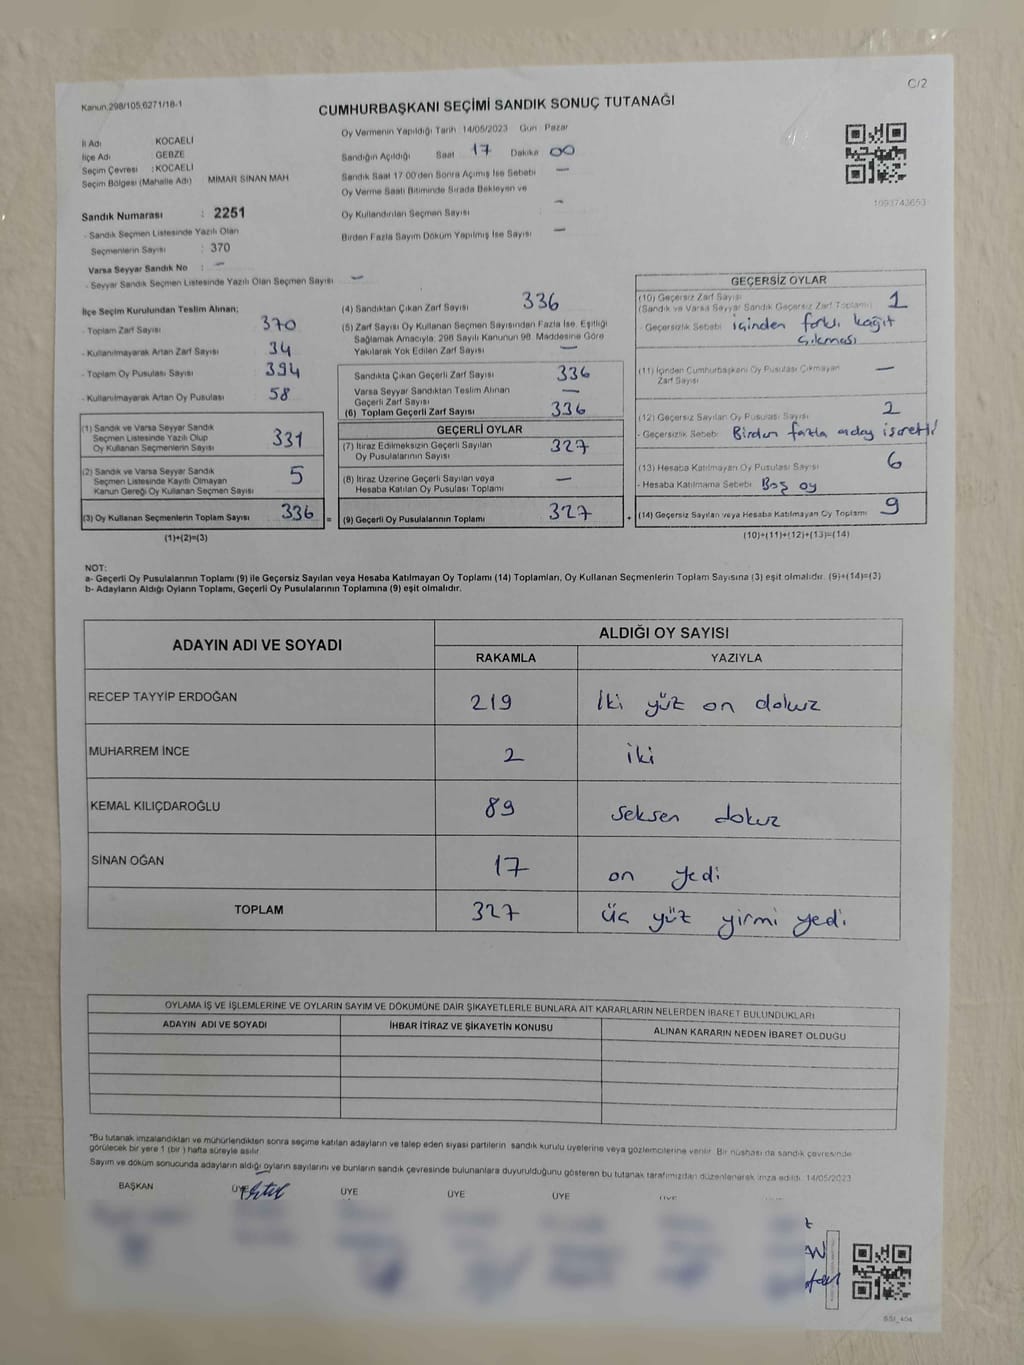 C/2
Kanun.298/105,6271/18-1
CUMHURBAŞKANI SEÇİMİ SANDIK SONUÇ TUTANAĞI
İl Adı KOCAELİ
İlçe Adı GEBZE
Seçim Çevresi :KOCAELİ
Seçim Bölgesi (Mahalle Adı) MİMAR SİNAN MAH
Sandık Numarası : 2251
- Sandık Seçmen Listesinde Yazılı Olan
Seçmenlerin Sayısı : 370
Varsa Seyyar Sandık No : -
- Seyyar Sandık Seçmen Listesinde Yazılı Olan Seçmen Sayısı -
Oy Vermenin Yapıldığı Tarih 14/05/2023 Gün Pazar
Sandığın Açıldığı Saat 17 Dakika 00
Sandık Saat 17:00'den Sonra Açımış İse Sebebi -
Oy Verme Saati Bitiminde Sırada Bekleyen ve
Oy Kullandırılan Seçmen Sayısı -
Birden Fazla Sayım Döküm Yapılmış İse Sayısı -
1093743653
İlçe Seçim Kurulundan Teslim Alınan;
- Toplam Zarf Sayısı 370
- Kullanılmayarak Artan Zarf Sayısı 34
- Toplam Oy Pusulası Sayısı 394
- Kullanılmayarak Artan Oy Pusulası 58
(1) Sandık ve Varsa Seyyar Sandık
Seçmen Listesinde Yazılı Olup
Oy Kullanan Seçmenlerin Sayısı 331
(2) Sandık ve Varsa Seyyar Sandık
Seçmen Listesinde Kayıtlı Olmayan
Kanun Gereği Oy Kullanan Seçmen Sayısı 5
(3) Oy Kullanan Seçmenlerin Toplam Sayısı 336 =
(1)+(2)=(3)
(4) Sandıktan Çıkan Zarf Sayısı 336
(5) Zarf Sayısı Oy Kullanan Seçmen Sayısından Fazla İse, Eşitliği
Sağlamak Amacıyla; 298 Sayılı Kanunun 98. Maddesine Göre
Yakılarak Yok Edilen Zarf Sayısı -
Sandıkta Çıkan Geçerli Zarf Sayısı 336
Varsa Seyyar Sandıktan Teslim Alınan
Geçerli Zarf Sayısı -
(6) Toplam Geçerli Zarf Sayısı 336
GEÇERLİ OYLAR
(7) İtiraz Edilmeksizin Geçerli Sayılan
Oy Pusulalarının Sayısı 327
(8) İtiraz Üzerine Geçerli Sayılan veya
Hesaba Katılan Oy Pusulası Toplamı -
(9) Geçerli Oy Pusulalarının Toplamı 327 +
GEÇERSİZ OYLAR
(10) Geçersiz Zarf Sayısı
(Sandık ve Varsa Seyyar Sandık Geçersiz Zarf Toplamı) 1
- Geçersizlik Sebebi içinden farklı kağıt
çıkması
(11) İçinden Cumhurbaşkanı Oy Pusulası Çıkmayan
Zarf Sayısı -
(12) Geçersiz Sayılan Oy Pusulası Sayısı 2
- Geçersizlik Sebebi Birden fazla aday işaretli
(13) Hesaba Katılmayan Oy Pusulası Sayısı 6
- Hesaba Katılmama Sebebi Boş oy
(14) Geçersiz Sayılan veya Hesaba Katılmayan Oy Toplamı 9
(10)+(11)+(12)+(13)=(14)
NOT:
a- Geçerli Oy Pusulalarının Toplamı (9) ile Geçersiz Sayılan veya Hesaba Katılmayan Oy Toplamı (14) Toplamları, Oy Kullanan Seçmenlerin Toplam Sayısına (3) eşit olmalıdır. (9)+(14)=(3)
b- Adayların Aldığı Oyların Toplamı, Geçerli Oy Pusulalarının Toplamına (9) eşit olmalıdır.
ADAYIN ADI VE SOYADI ALDIĞI OY SAYISI
RAKAMLA YAZIYLA
RECEP TAYYİP ERDOĞAN 219 iki yüz on dokuz
MUHARREM İNCE 2 iki
KEMAL KILIÇDAROĞLU 89 seksen dokuz
SİNAN OĞAN 17 on yedi
TOPLAM 327 üç yüz yirmi yedi
OYLAMA İŞ VE İŞLEMLERİNE VE OYLARIN SAYIM VE DÖKÜMÜNE DAİR ŞİKAYETLERLE BUNLARA AİT KARARLARIN NELERDEN İBARET BULUNDUKLARI
ADAYIN ADI VE SOYADI İHBAR İTİRAZ VE ŞİKAYETİN KONUSU ALINAN KARARIN NEDEN İBARET OLDUĞU
*Bu tutanak imzalandıktan ve mühürlendikten sonra seçime katılan adayların ve talep eden siyasi partilerin sandık kurulu üyelerine veya gözlemcilerine verilir. Bir nüshası da sandık çevresinde
görülecek bir yere 1 (bir) hafta süreyle asılır.
Sayım ve döküm sonucunda adayların aldığı oyların sayılarını ve bunların sandık çevresinde bulunanlara duyurulduğunu gösteren bu tutanak tarafımızdan düzenlenerek imza edildi. 14/05/2023
BAŞKAN ÜYE ÜYE ÜYE ÜYE ÜYE